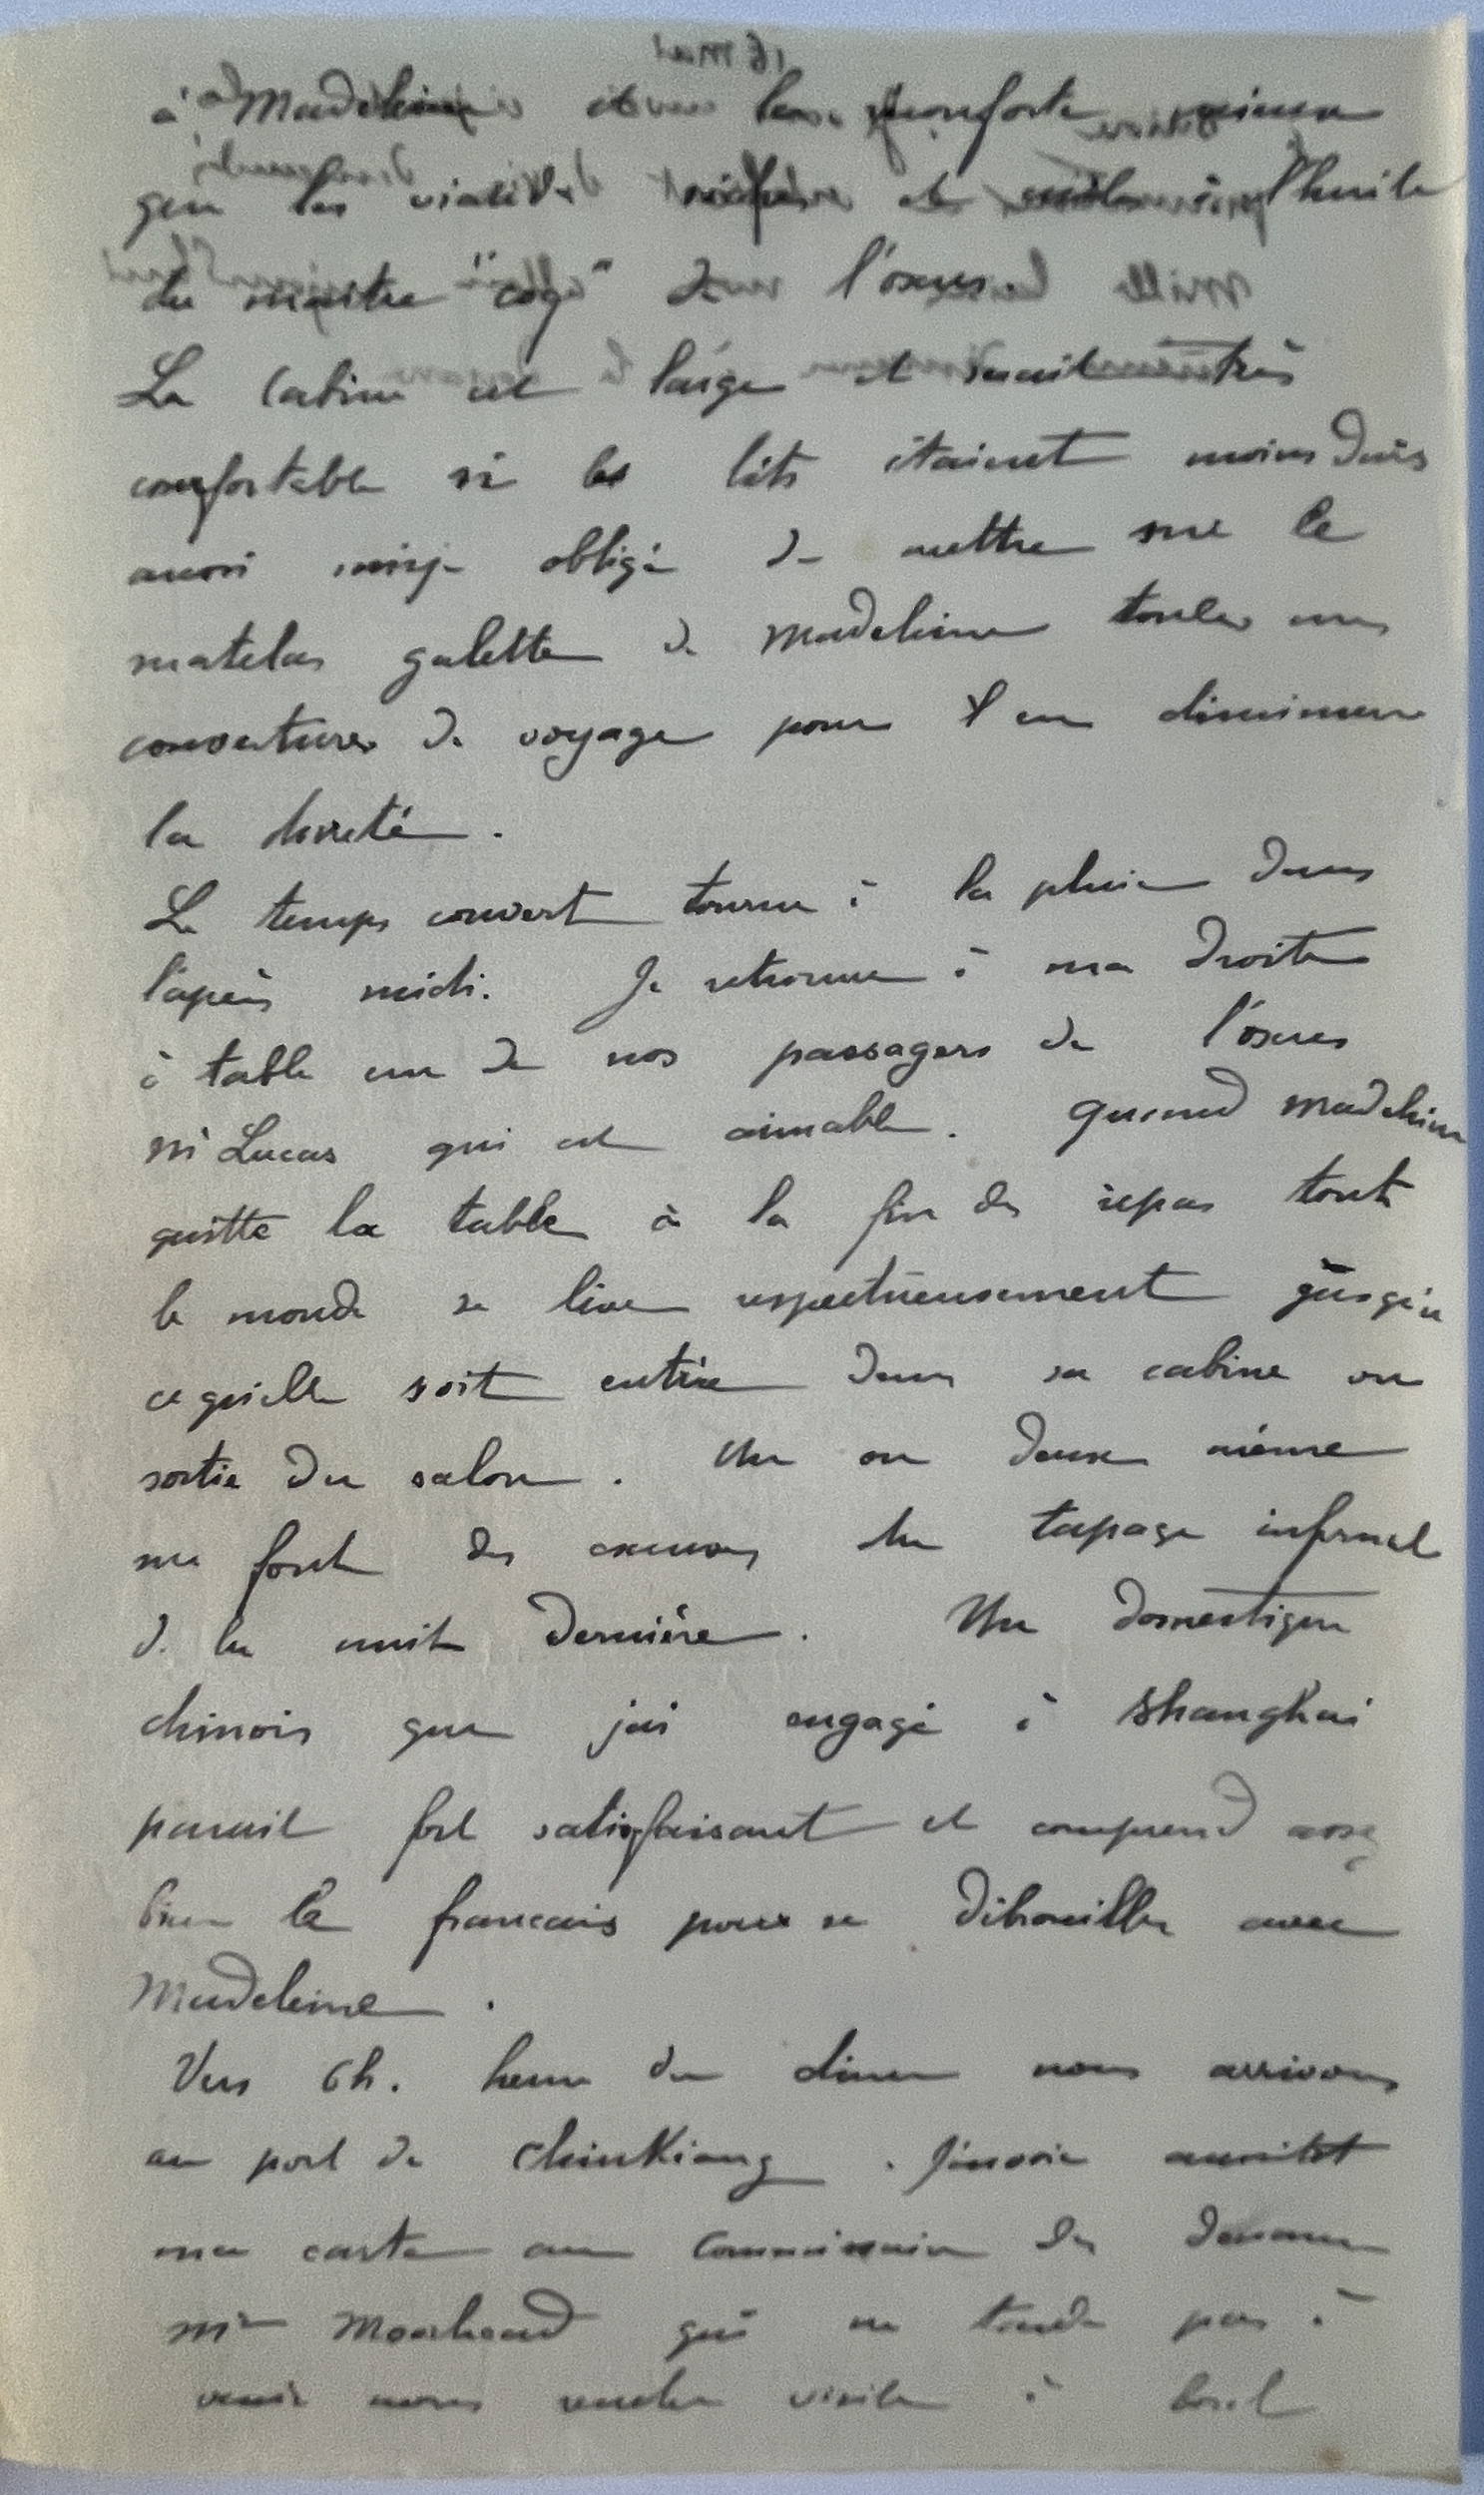 à Madeleine et nous réconforte mieux
que les viandes sèches et l'huile
du maitre "coq" de l'oxus.
La Cabine est large et serait très
confortable si les lits étaient moins durs
aussi suis-je obligé de mettre sur le
matelas galette de Madeleine toutes mes
couvertures de voyage pour en diminuer
la dureté.
Le temps couvert tourne à la pluie dans
l'après midi. Je retrouve à ma droite
à table un de nos passagers de l'oxus
mr Lucas qui est aimable. Quand Madeleine
quitte la table à la fin des repas tout
le monde se lève respectueusement jusqu'à
ce qu'elle soit entrée dans sa cabine ou
sortie du salon. Un ou deux même
me font des excuses du tapage infernal
de la nuit dernière. Un domestique
chinois que j'ai engagé à Shanghai
parait fort satisfaisant et comprend assez
bien le francais pour se débrouiller avec
Madeleine.
Vers 6h. heure du diner nous arrivons
au port de Chinkiang. J'envoie aussitot
ma carte au Commissaire des douanes
mr Moorhead qui ne tarde pas à
venir nous rendre visite à bord